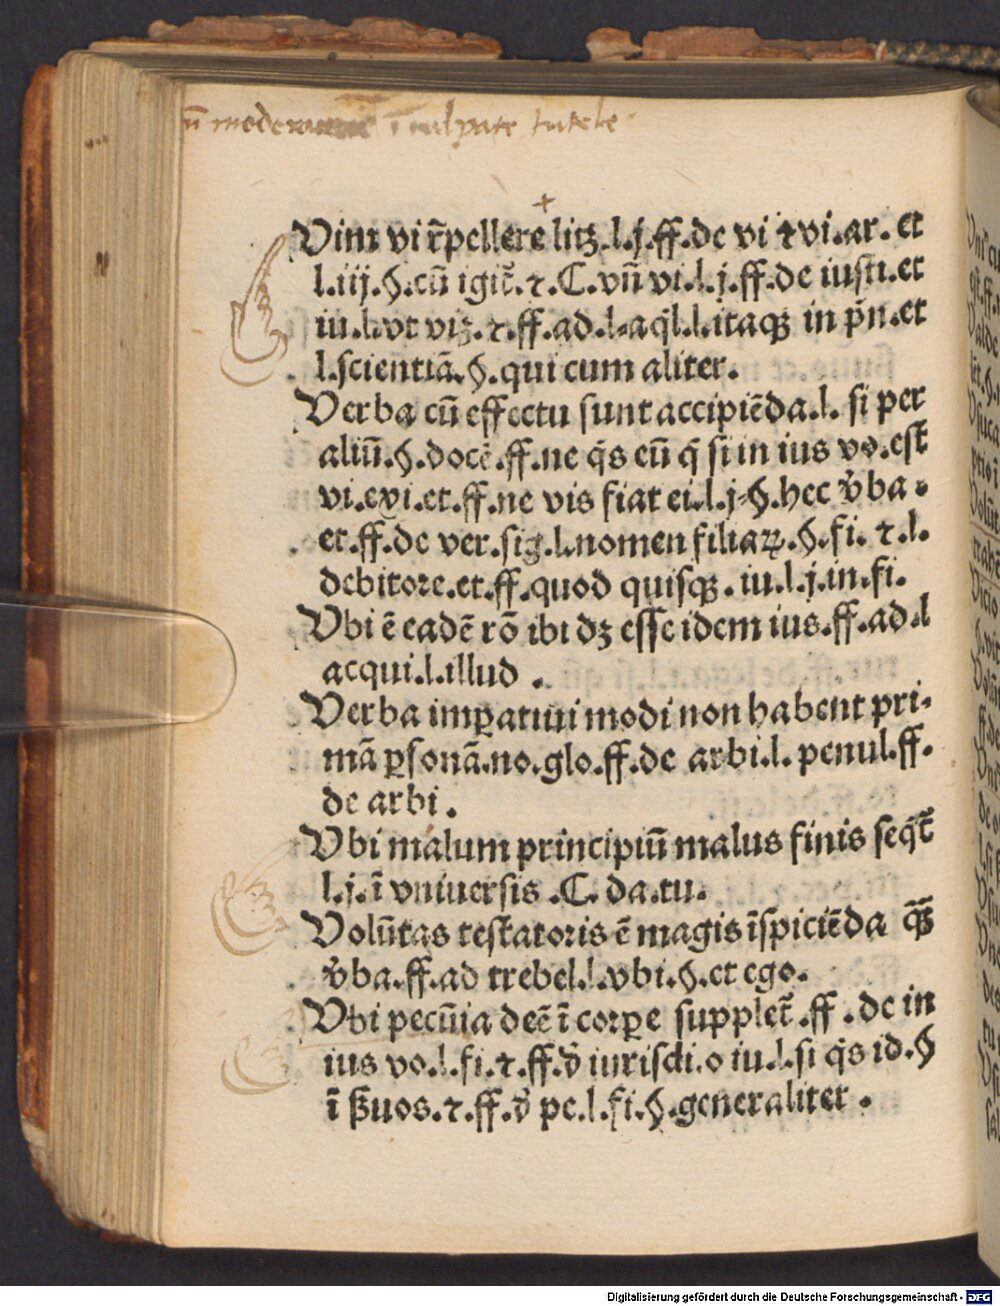 Vim vi r̄pellere litꝫ.l.j.ff.de vi ⁊ vi.ar. et
l.iij.§.cū igit̄.⁊.C.vn̄ vi.l.j.ff.de iusti.et
iu.l.vt viꝫ.⁊.ff.ad.l.aq̄l.l.itaqꝫ in p̄n.et
l.scientiā.§.qui cum aliter.
Verba cū effectu sunt accipiēda.l. si per
aliū.§.docē.ff.ne q̄s eū q̄ si in ius vo.est
vi.exi.et.ff.ne vis fiat ei.l.j.§.hec v̄ba.
et.ff.de ver.sig.l.nomen filiaꝝ.§.fi.⁊.l.
debitore.et.ff.quod quisqꝫ.iu.l.j.in.fi.
Vbi ē eadē rō ibi dꝫ esse idem ius.ff.ad.l
acqui.l.illud.
Verba imꝑatiui modi non habent pri-
mā ꝑsonā.no.glo.ff.de arbi.l.penul.ff.
de arbi.
Vbi malum principiū malus finis seqt̄
l.j.ī vniuersis.C.da.tu.
Volūtas testatoris ē magis īspiciēda q̄ꝫ
v̄ba.ff.ad trebel.l.vbi.§.et ego.
Vbi pecūia deē ī corꝑe supplet̄.ff.de in
ius vo.l.fi.⁊.ff.d̄ iurisdi.o iu.l.si q̄s id.§
ī ẞuos.⁊.ff.d̄ pe.l.fi.§.generaliter.
Digitalisierung gefördert durch die Deutsche Forschungsgemeinschaft - DFG